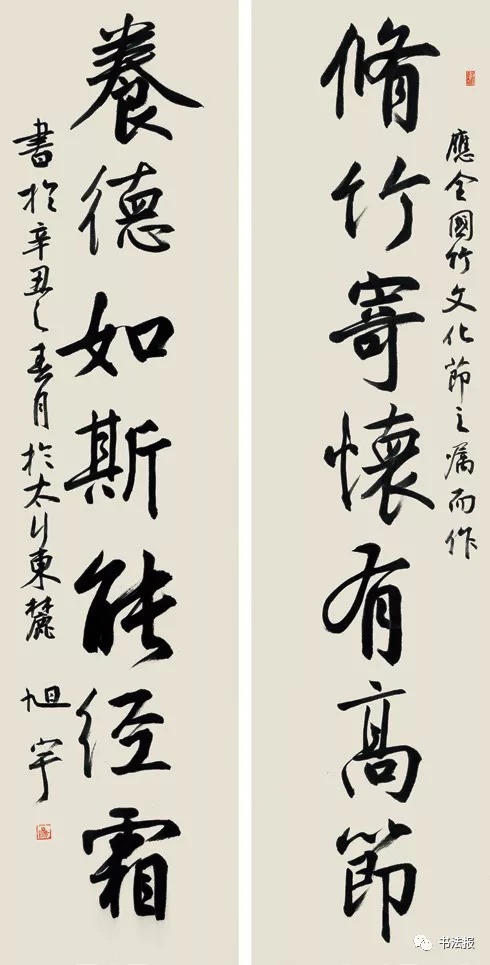 應全國竹文化節之嘱而作
脩竹寄懷有高節
養德如斯能经霜
書於辛丑之春月於太行東麓
旭宇
书法报